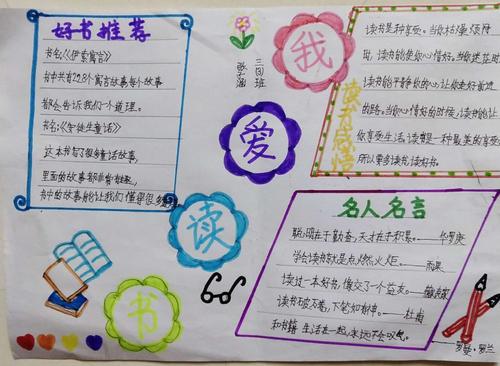 好书推荐
书名:《伊索寓言》
书中共有298个寓言故事每个故事
都会告诉我们一个道理。
书名:《安徒生童话》
这本书写了很多童话故事,
里面的故事都非常有趣,
书中的故事能让我们懂得很多
三(3)班
我
爱
读
书
读书感悟
读书是种享受。当你枯燥烦闷
时,读书能使你心情好。当你迷茫时
读书能平静你的心,让你走好前进
的路。当你心情好的时候,读书能让
你享受生活。读书是一种最美的享受
所以要多读书,读好书。
名人名言
聪明在于勤奋,天才在于积累。——华罗庚
学会读书就是点燃火炬。——雨果
读过一本好书,像交了一个益友。——臧克家
读书破万卷,下笔如有神。——杜甫
和书籍生活在一起,永远不会叹气。
——罗曼·罗兰